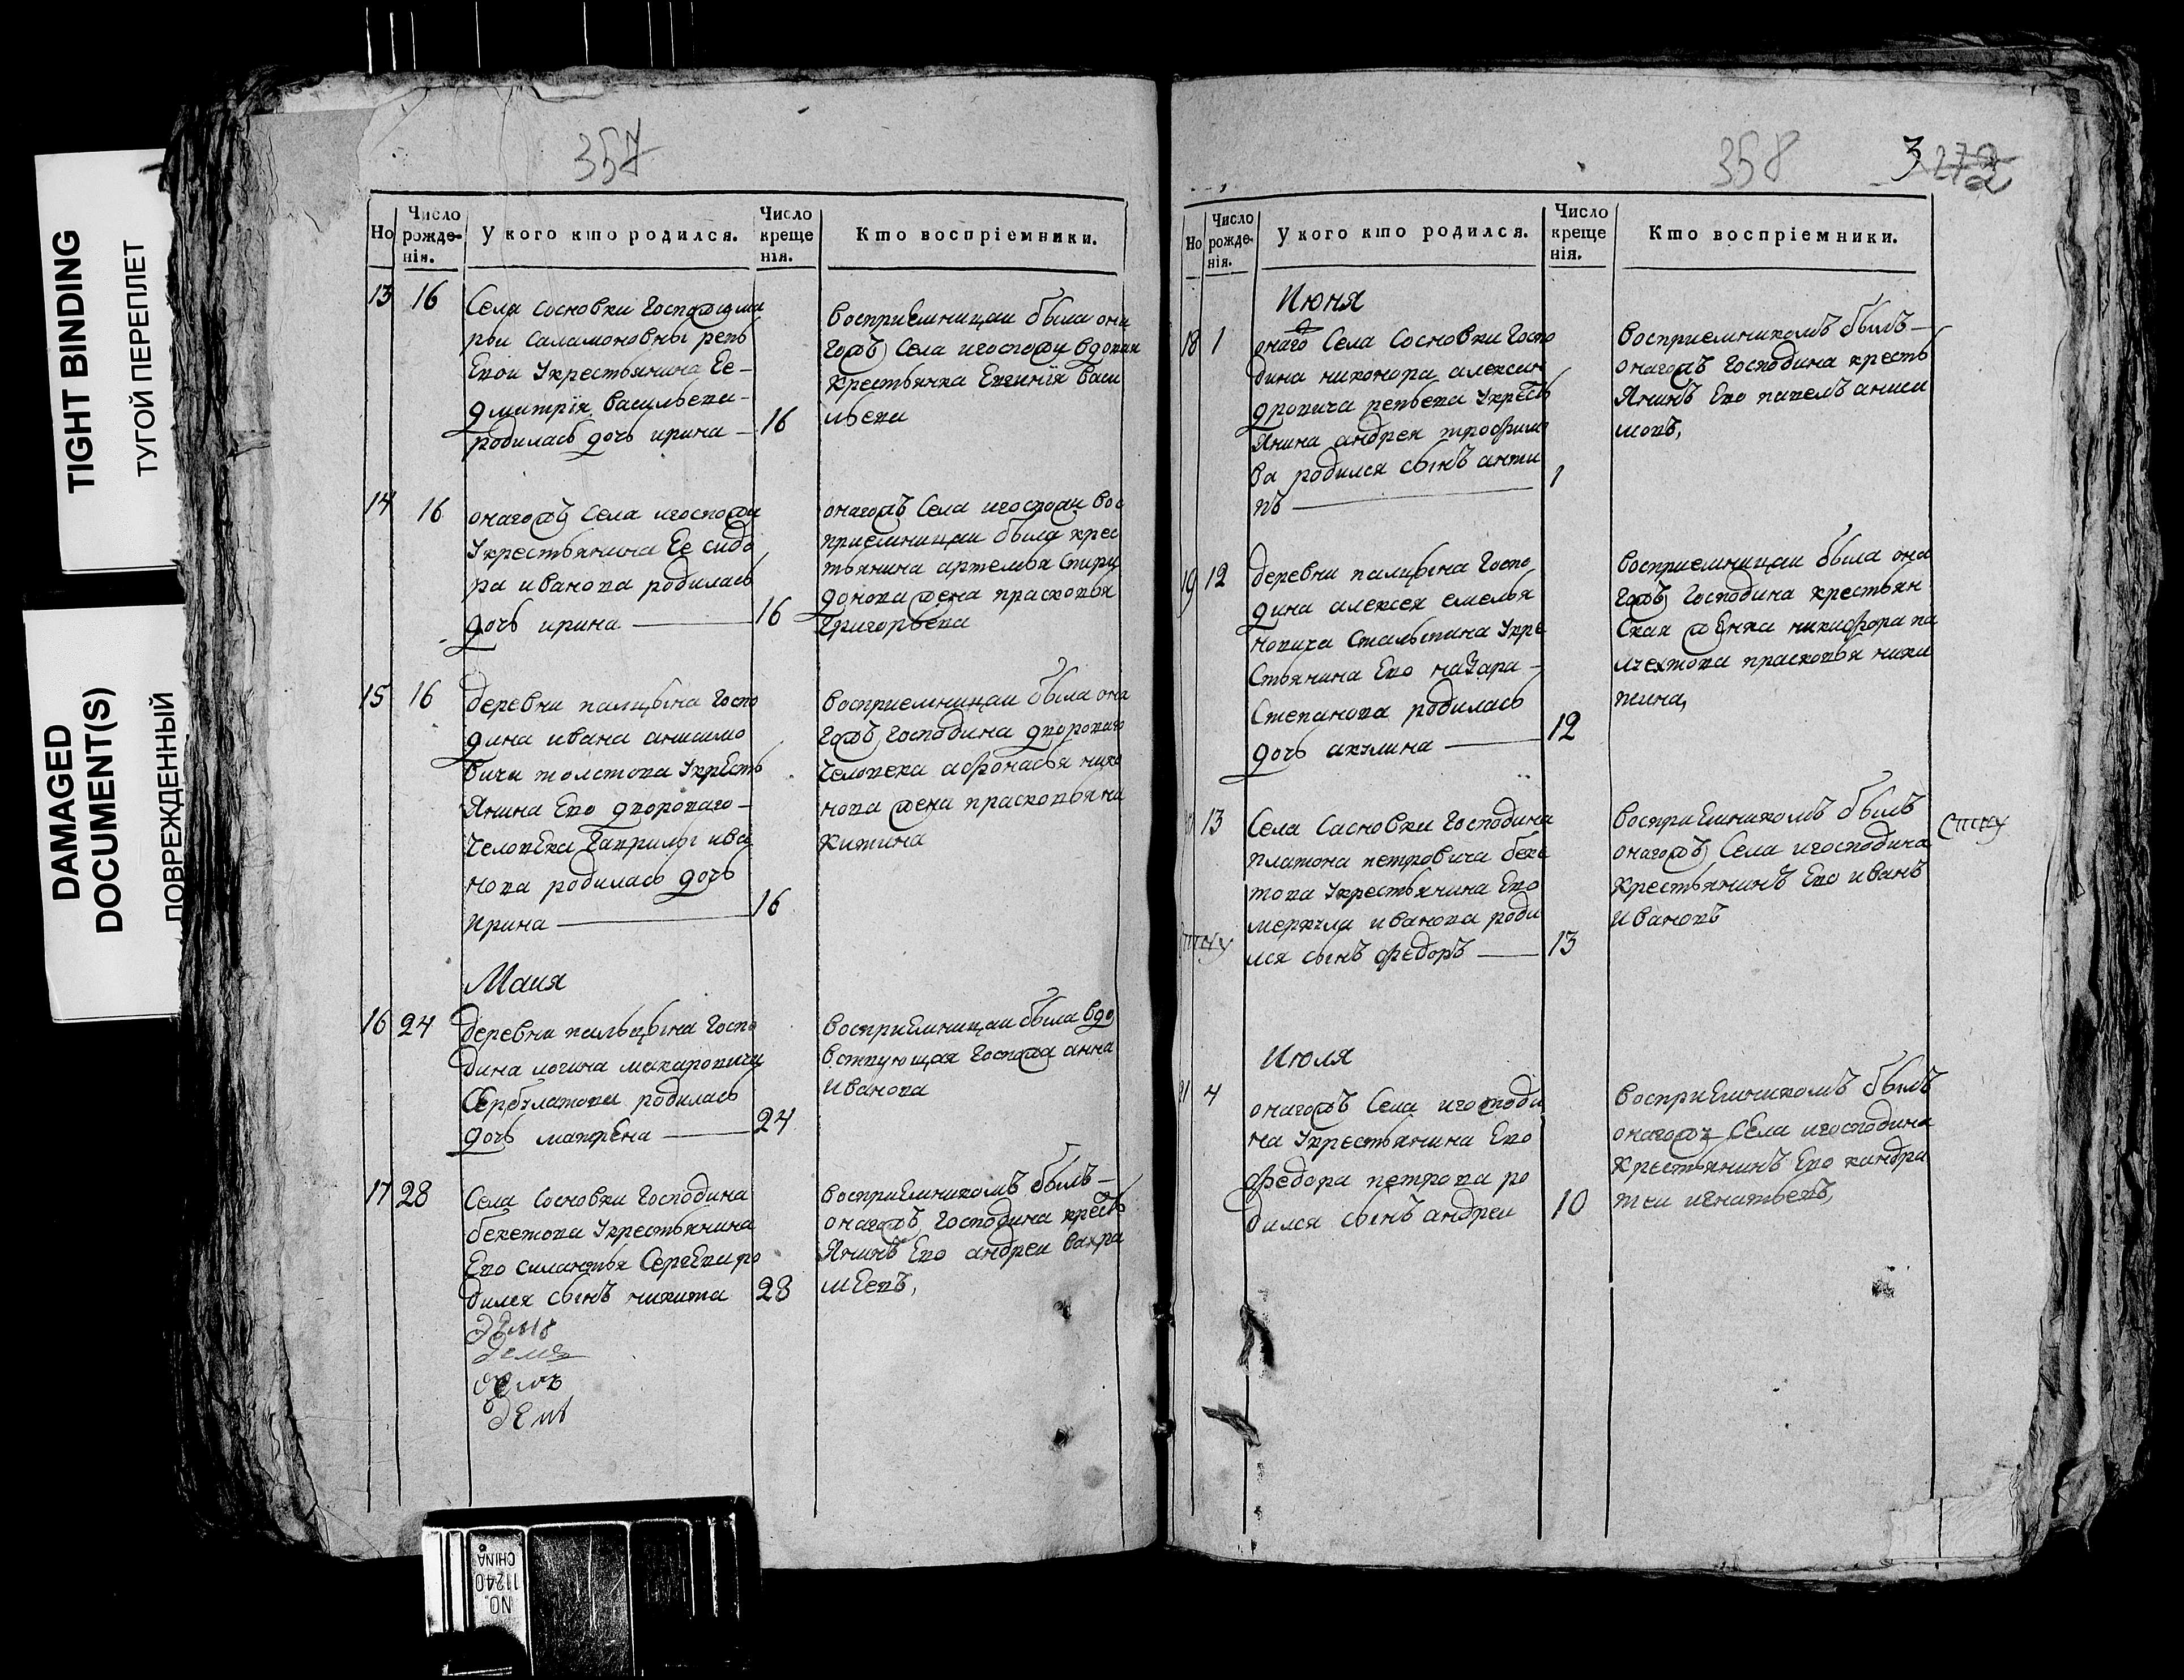 TIGHT BINDING
ТУГОЙ ПЕРЕПЛЕТ
DAMAGED
DOCUMENT(S)
ПОВРЕЖДЕННЫЙ
357
Но
Число рожденія.
У кого кто родился.
Число крещенія.
Кто воспріемники.
13 16
Села Сосновки Госпожи ма
рьи Саламоновны репь
Евои Укрестьянина Ее
дмитрїя васильева
родилась дочь ирина 16
восприемницаи была она
гожъ Села игоспожи вдовая
крестьянка Евгинїя васи
льева
14 16
онагожъ Села игоспожи
Укрестьянина Ее сидо
ра иванова родилась
дочь ирина 16
онагожъ Села игоспожи вос
приемницаи была крес
тьянина артемья Спири
донова жена прасковья
Григорьева
15 16
деревни палцына Госпо
дина ивана анисимо
вича толстова Укресть
Янина Ево двороваго
человека гаврилы ива
нова родилась дочь
Ирина 16
восприемницаи была она
гожъ господина двороваго
человека афонасья нико
нова жена прасковья ни
китина
Маия
16 24
деревни пальцына Госпо
дина логина макаровича
Сербулатова родилась
дочь матрена 24
восприемницаи была вдо
вствующая Госпожа анна
иванова
17 28
Села Сосновки Господина
бекетова Укрестьянина
Ево силантья Сергеева ро
дился сынъ никита 28
восприемникомъ былъ
онагожъ Господина кресть
Янинъ Ево андреи вахра
меевъ,
358
3
272
Но
Число рожденія.
У кого кто родился.
Число крещенія.
Кто воспріемники.
Июня
18 1
онаго Села Сосновки Госпо
дина никонора алексан
дровича репьева Укресть
Янина андрея трофимо
ва родился сынъ анти
пъ 1
восприемникомъ былъ
онагожъ Господина кресть
Янинъ Ево павелъ аниси
мовъ,
19 12
деревни палцына Госпо
дина алексея емелья
новича Сталыпина Укре
Стьянина Ево наЗара
Степанова родилась
дочь акулина 12
восприемницаи была она
гожъ Господина крестьян
Ская женка никифора па
прасковья ники
тина,
13
Села Сасновки Господина
платона петровича беке
това Укрестьянина Ево
меркула иванова роди
лся сынъ федоръ 13
восприемникомъ былъ
онагожъ Села игосподина
крестьянинъ Ево иванъ
Ивановъ
Июля
4
онагожъ Села игосподи
на Укрестьянина Ево
федора петрова ро
дился сынъ андреи 10
восприемникомъ былъ
онагожъ Села игосподина
крестьянинъ Ево кандра
теи игнатьевъ,
NO.
11240
CHINA